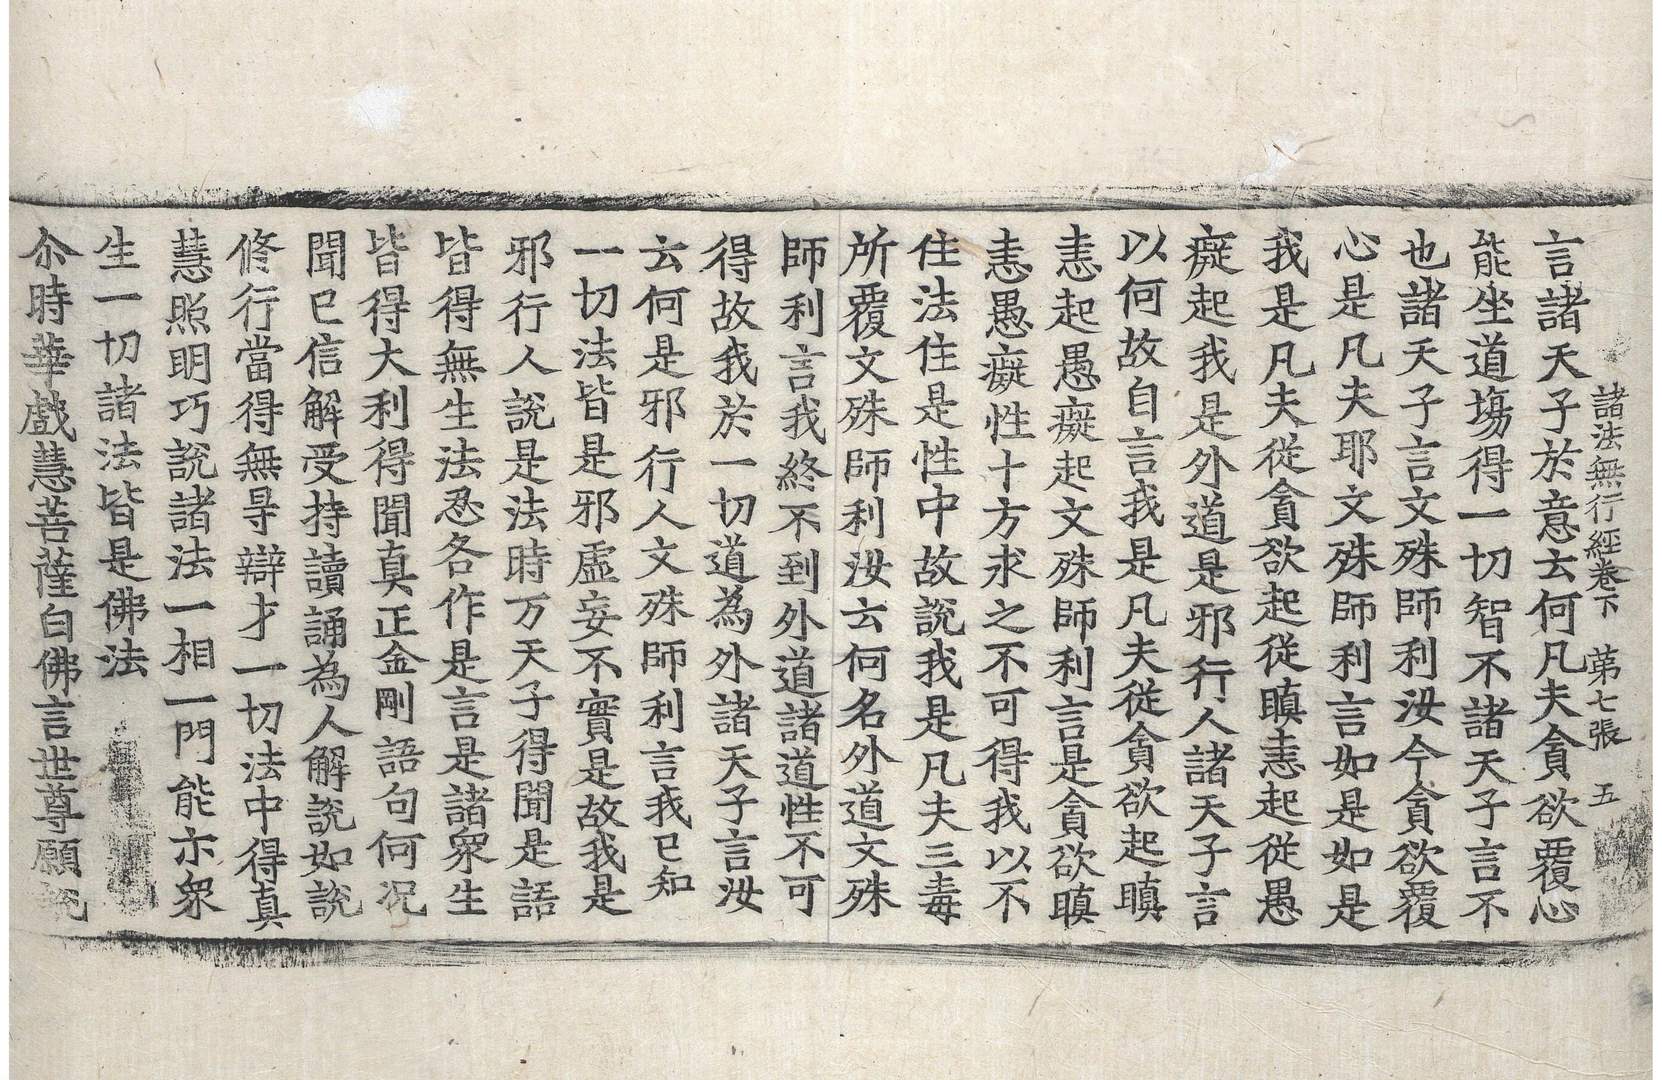 諸法無行經卷下　第七張　五
言諸天子於意云何凡夫貪欲覆心
能坐道場得一切智不諸天子言不
也諸天子言文殊師利汝今貪欲覆
心是凡夫耶文殊師利言如是如是
我是凡夫從貪欲起從瞋恚起從愚
癡起我是外道是邪行人諸天子言
以何故自言我是凡夫從貪欲起瞋
恚起愚癡起文殊師利言是貪欲瞋
恚愚癡性十方求之不可得我以不
住法住是性中故說我是凡夫三毒
所覆文殊師利汝云何名外道文殊
師利言我終不到外道諸道性不可
得故我於一切道為外諸天子言汝
云何是邪行人文殊師利言我已知
一切法皆是邪虛妄不實是故我是
邪行人說是法時万天子得聞是語
皆得無生法忍各作是言是諸衆生
皆得大利得聞真正金剛語句何況
聞已信解受持讀誦為人解說如說
修行當得無㝵辯才一切法中得真
慧照明巧說諸法一相一門能示衆
生一切諸法皆是佛法
尒時華戲慧菩薩白佛言世尊願說